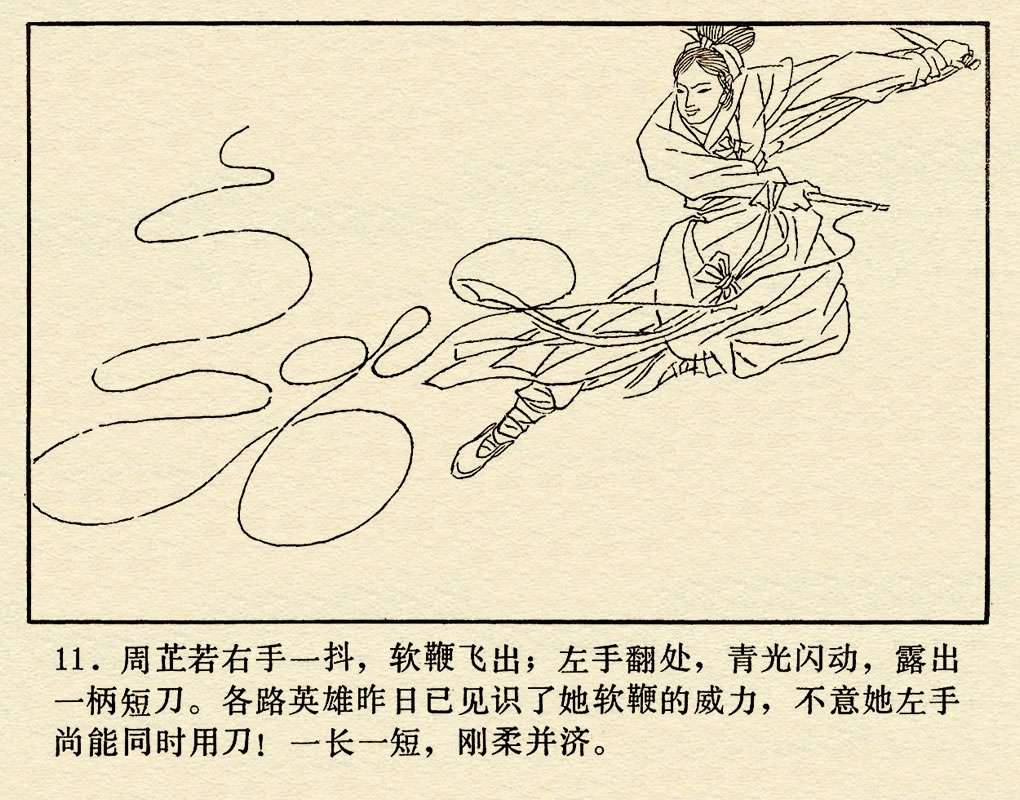 11. 周芷若右手一抖，软鞭飞出；左手翻处，青光闪动，露出
一柄短刀。各路英雄昨日已见识了她软鞭的威力，不意她左手
尚能同时用刀！一长一短，刚柔并济。